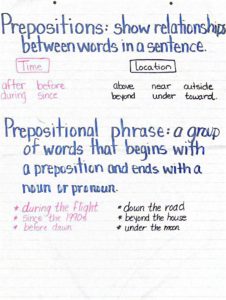 Prepositions: show relationships
between words in a sentence.
Time location
after before above near outside
during since beyond under toward
Prepositional phrase: a group
of words that begins with
a preposition and ends with a
noun or pronoun.
* during the flight * down the road
* since the 1970s * beyond the house
* before dawn * under the moon